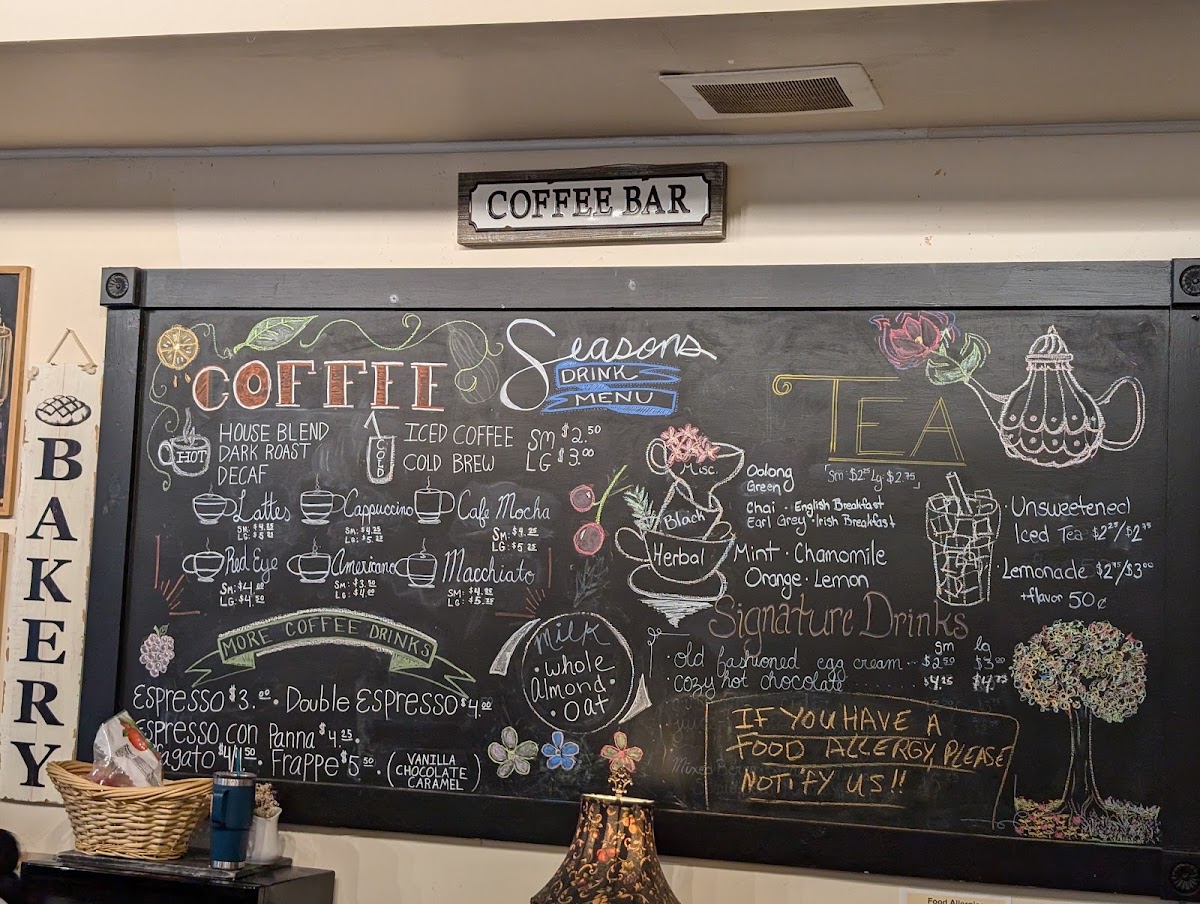 COFFEE BAR
BAKERY
Seasons
DRINK
MENU
COFFEE
HOT
HOUSE BLEND
DARK ROAST
DECAF
COLD
ICED COFFEE
COLD BREW
SM $2.50
LG $3.00
Lattes
Cappuccino
SM: $4.25
LG: $5.25
Cafe Mocha
SM: $4.25
LG: $5.25
Red Eye
SM: $4.00
LG: $4.50
Americano
SM: $3.50
LG: $4.00
Macchiato
MORE COFFEE DRINKS
Espresso $3.00 · Double Espresso $4.00
Espresso con Panna $4.25 ·
$4.50 · Frappe $5.50 ·
(VANILLA
CHOCOLATE
CARAMEL)
MILK
· Whole
Almond ·
· Oat
TEA
Sm $2.25 Lg $2.75
Misc.
Oolong
Green
Black
Chai · English Breakfast
Earl Grey · Irish Breakfast
Herbal
Mint · Chamomile
Orange · Lemon
· Unsweetened
Iced Tea $2.25/$2.75
· Lemonade $2.50/$3.00
+flavor 50¢
Signature Drinks
sm lg
· old fashioned egg cream $2.50 $3.00
· cozy hot chocolate $4.25 $4.75
IF YOU HAVE A
FOOD ALLERGY, PLEASE
NOTIFY US!!